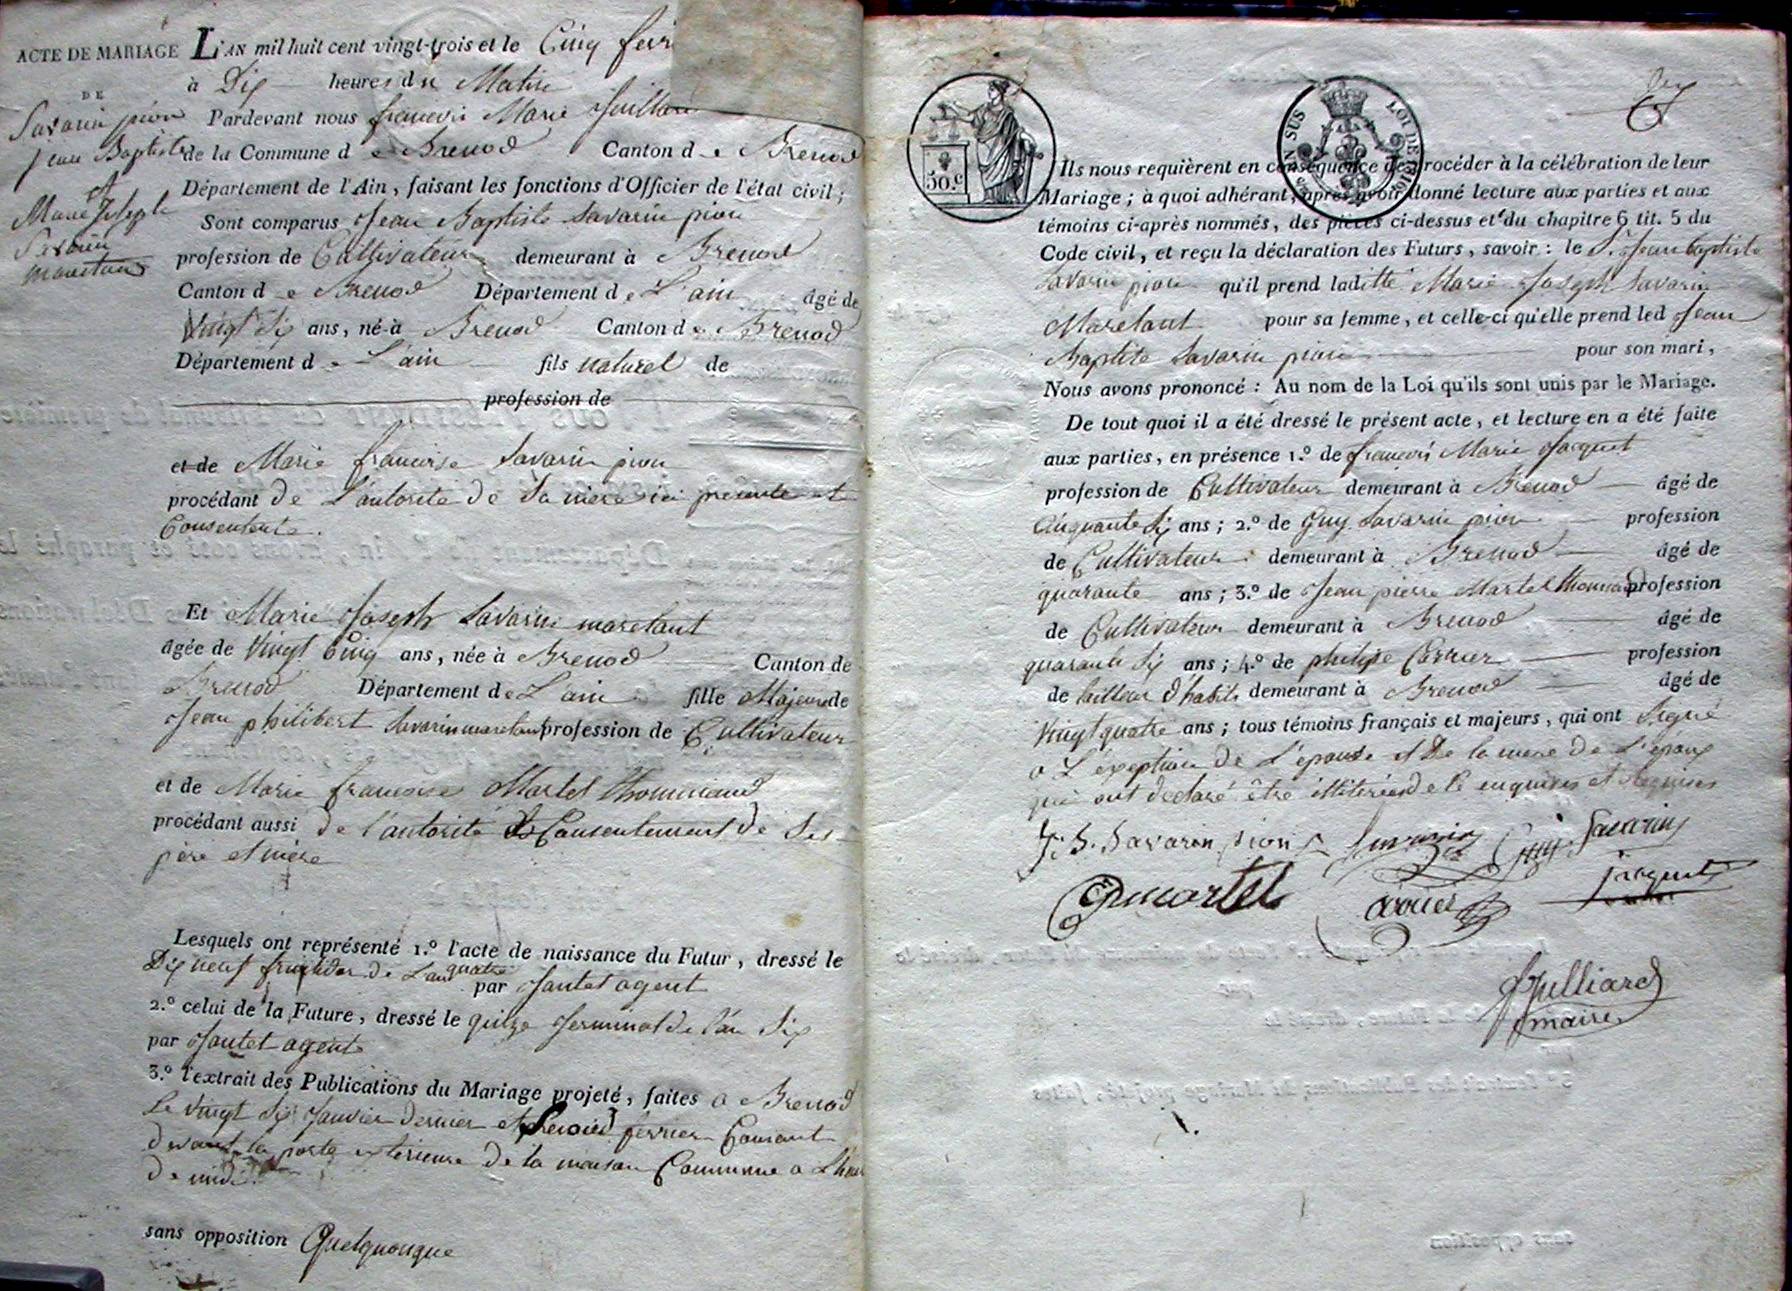 ACTE DE MARIAGE
DE
Savarin pion
jean Baptiste
et
Marie Joseph
Savarin
maretant
L'AN mil huit cent vingt-trois et le Cinq fevr
à Dix heures du Matin
Pardevant nous françois Marie Juillard
de la Commune de Brenod Canton de Brenod
Département de l'Ain, faisant les fonctions d'Officier de l'état civil;
Sont comparus Jean Baptiste Savarin pion
profession de Cultivateur demeurant à Brenod
Canton de Brenod Département de L'ain âgé de
Vingt Six ans, né à Brenod Canton de Brenod
Département de L'ain fils naturel de
profession de
et de Marie francoise Savarin pion
procédant de L'autorité de Sa mere ici presente et
Consentente.
Et Marie Joseph Savarin maretant
âgée de Vingt Cinq ans, née à Brenod Canton de
Brenod Département de L'ain fille Majeure de
Jean philibert Savarin maretant profession de Cultivateur
et de Marie francoise Martel thomiand
procédant aussi de l'autorité & Consentement de Ses
père et mère
Lesquels ont représenté 1.º l'acte de naissance du Futur, dressé le
Dix neuf fructidor de L'an quatre par Jantet agent
2.º celui de la Future, dressé le quinze Germinal de l'an Six
par Jantet agent
3.º l'extrait des Publications du Mariage projeté, faites a Brenod
Le Vingt Six Janvier dernier et fevrier Courant
devant la porte exterieure de la maison Commune a L'heure
de midi.
sans opposition Quelquonque
50.c
LOI DE 1816
Ils nous requièrent en conséquence de procéder à la célébration de leur
Mariage; à quoi adhérant, après avoir donné lecture aux parties et aux
témoins ci-après nommés, des pièces ci-dessus et du chapitre 6 tit. 5 du
Code civil, et reçu la déclaration des Futurs, savoir: le S.r Jean baptiste
Savarin pion qu'il prend laditte Marie Joseph Savarin
Maretant pour sa femme, et celle-ci qu'elle prend led Jean
Baptiste Savarin pion pour son mari,
Nous avons prononcé: Au nom de la Loi qu'ils sont unis par le Mariage.
De tout quoi il a été dressé le présent acte, et lecture en a été faite
aux parties, en présence 1.º de françois Marie Jacquet
profession de Cultivateur demeurant à Brenod âgé de
Cinquante Six ans; 2.º de Guy Savarin pion profession
de Cultivateur demeurant à Brenod âgé de
quarante ans; 3.º de Jean pierre Martel thomiand profession
de Cultivateur demeurant à Brenod âgé de
quarante Six ans; 4.º de philipe Carrier profession
de tailleur d'habits demeurant à Brenod âgé de
Vingt quatre ans; tous témoins français et majeurs, qui ont Signé
a L'éxeption de L'épouse et De la mere de L'époux
qui ont declaré être illiterées de Ce enquises et Requises
J. B. Savarin pion Savarin Guy Savarin
martel jacquet
Julliard
maire